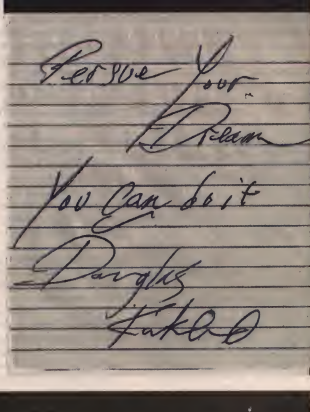 Persue Your
Dream
You Can do it
Douglas